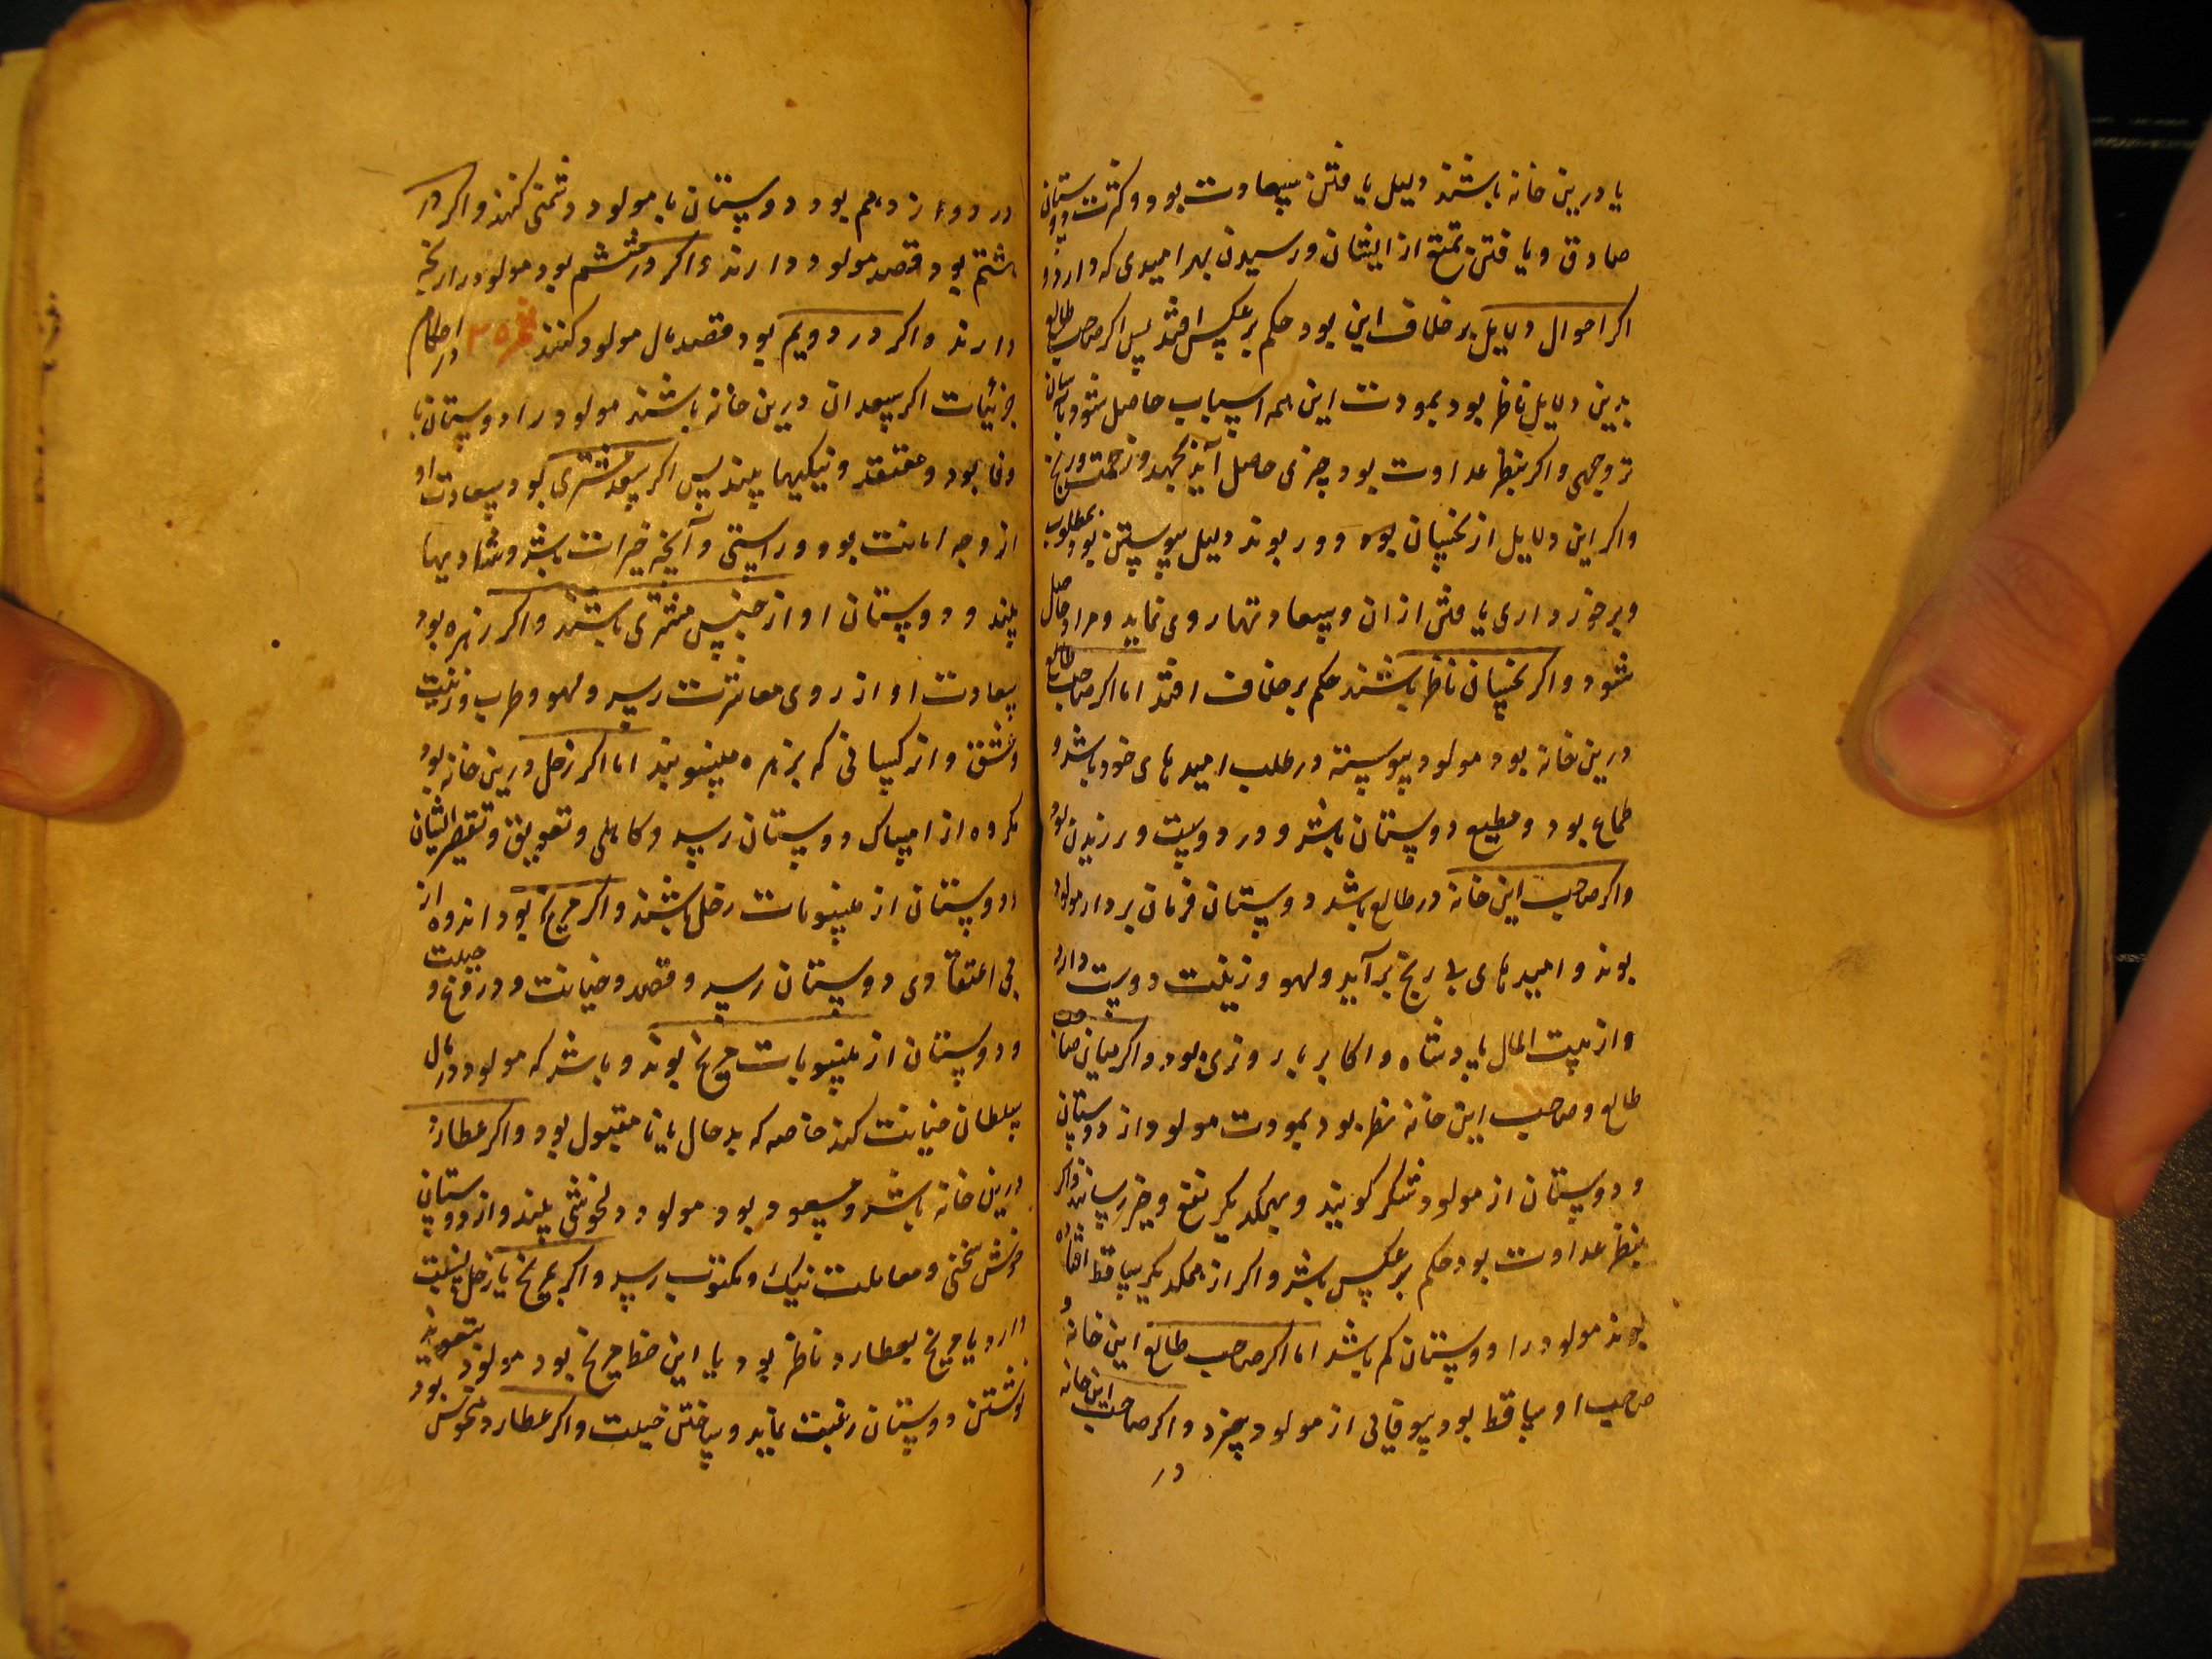 یا درین خانه باشند دلیل یافتن سعادت بود و کثرت دوستان
صادق و یافتن تمتع از ایشان و رسیدن بهر امیدی که دارد و
اکر احوال دلایل بر خلاف این بود حکم برعکس افتد پس اکر صاحب طالع
بدین دلایل ناظر بود بمودت این همه اسباب حاصل شود بآسان
تر وجهی و اکر بنظر عداوت بود چیزی حاصل آید بجهد و زحمت و رنج
و اکر این دلایل از نحسان دور بوند دلیل پیوستن بود بمطلوب
و برخورداری یافتن ازان و سعادتها روی نماید و مراد حاصل
شود و اکر نحسان ناظر باشند حکم بر خلاف افتد اما اکر صاحب طالع
درین خانه بود مولود پیوسته در طلب امیدهای خود باشد و
طماع بود و مطیع دوستان باشد و در دوست ورزیدن بود
و اکر صاحب این خانه در طالع باشد دوستان فرمان بردار مولود
بوند و امیدهای بی رنج برآید و لهو و زینت دوست دارد
و از بیت المال پادشاه و اکابر با روزی بود و اکر میان صاحب
طالع و صاحب این خانه نظر بود بمودت مولود از دوستان
و دوستان از مولود شکر کویند و بهمدیکر نفع و خیر رسانند و اکر
بنظر عداوت بود حکم برعکس باشد و اکر از همدیکر ساقط افتاده
بوند مولود را دوستان کم باشد اما اکر صاحب طالع این خانه و
صاحب او ساقط بود بیوفائی از مولود خیزد و اکر صاحب این خانه
در
در دوازدهم بود دوستان با مولود دشمنی کنند و اکر در
هشتم بود قصد مولود دارند و اکر در ششم بود مولود را رنجه
دارند و اکر در دویم بود قصد مال مولود کنند نظر ۲۵ در احکام
جزئیات اکر سعدان درین خانه باشند مولود را دوستان با
وفا بود و معتقد و نیکیها بیند پس اکر سعد مشتری بود سعادت او
از وجه امانت بود و راستی و آنچه خیرات باشد و شادیها
بیند و دوستان او از جنس مشتری باشند و اکر زهره بود
سعادت او از روی معاشرت رسد و لهو و طرب و زینت
و عشق و از کسانی که بزهره منسوبند اما اکر زحل درین خانه بود
مکروه از امساک دوستان رسد و کاهلی و تعویق و تقصیر ایشان
و دوستان از منسوبات زحل باشند و اکر مریخ بود اندوه از
بی اعتقادی دوستان رسد و قصد و خیانت و دروغ و حیلت
و دوستان از منسوبات مریخ بوند و باشد که مولود در مال
سلطان خیانت کند خاصه که بد حال یا نا مقبول بود و اکر عطارد
درین خانه باشد و مسعود بود مولود دلخوشی بیند و از دوستان
خوش سخنی و معاملت نیک و مکتوب رسد و اکر مریخ یا زحل نسبت
دارد یا مریخ بعطارد ناظر بود یا این خط مریخ بود مولود بتعویذ
نوشتن دوستان رغبت نماید و ساختن حیلت و اکر عطارد منحوس بود